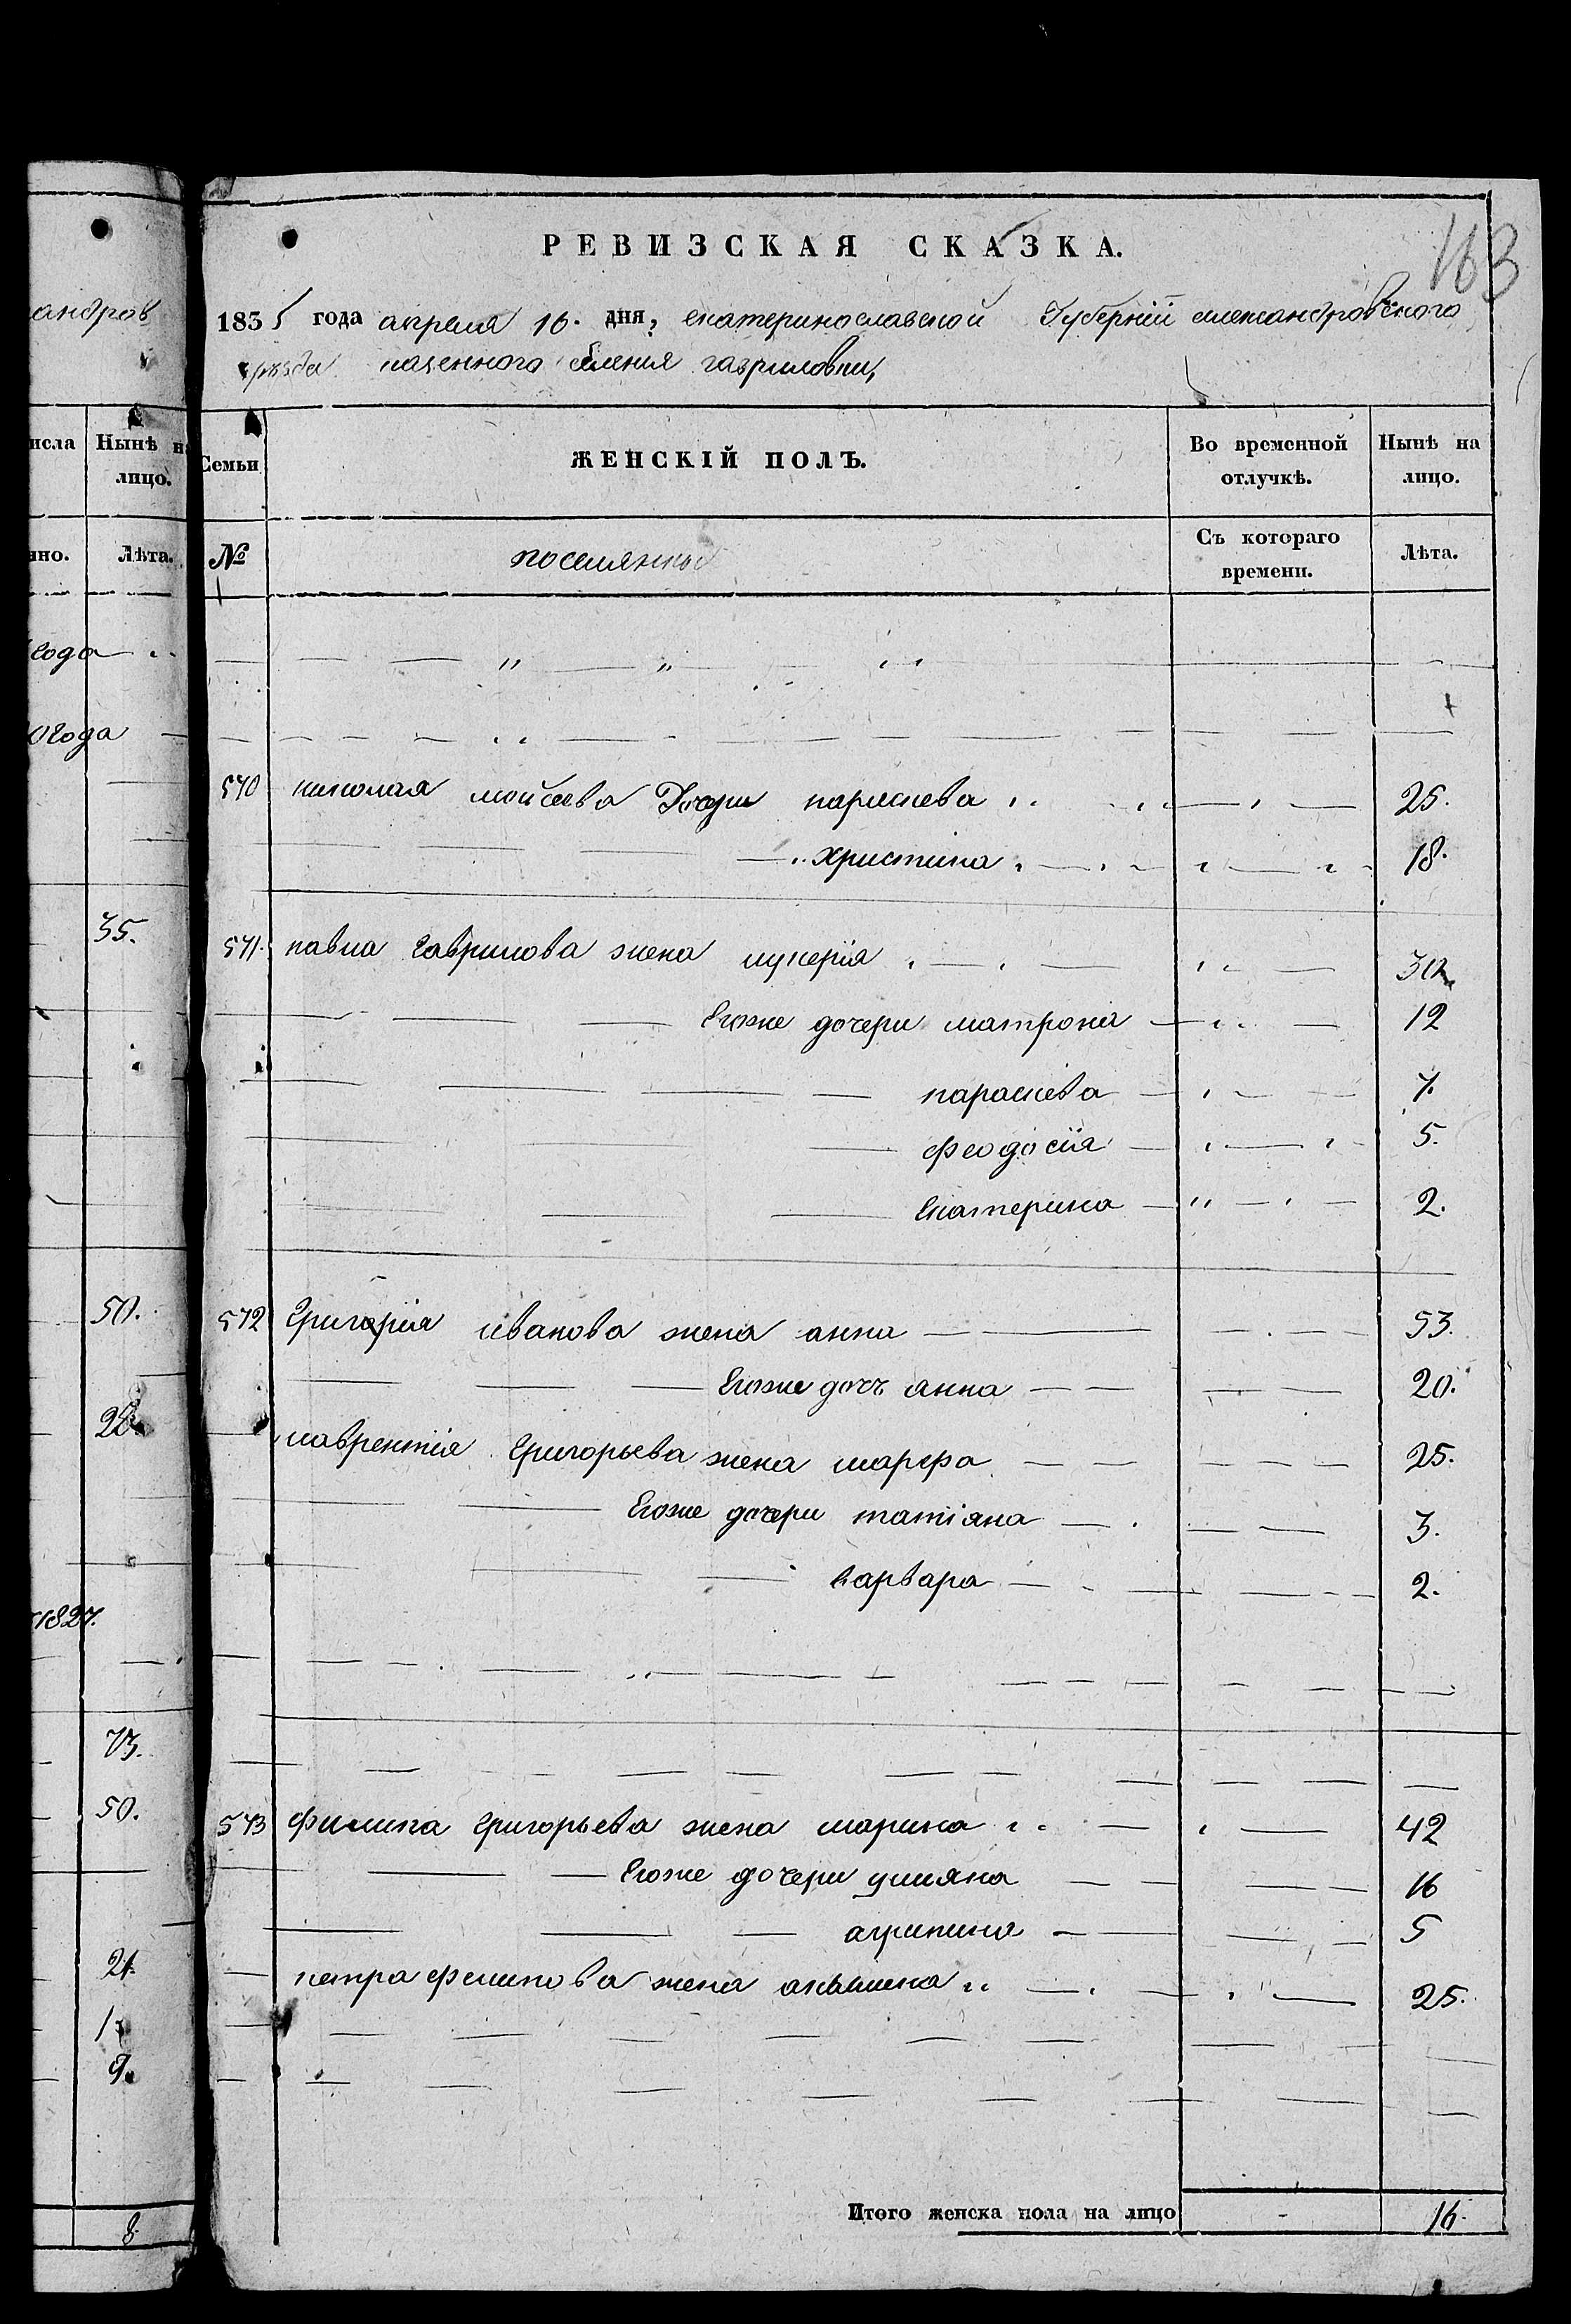 андров
исла Нынѣ на
лицо.
нно. Лѣта.
года
0 года
35.
50.
1827.
73.
50.
21.
9.
8.
163
РЕВИЗСКАЯ СКАЗКА.
1835 года апреля 16. дня, екатеринославской Губерній александровского
уѣзда казенного селения гавриловки,
Семьи ЖЕНСКІЙ ПОЛЪ. Во временной отлучкѣ. Нынѣ на лицо.
№ поселянъ Съ котораго времени. Лѣта.
570 николая мойсеева Дочери параскева 25.
христина 18.
571. павла гаврилова жена лукерія 30.
Егоже дочери матрона 12
параскева 7.
феодосія 5.
Екатерина 2.
572 Григорія иванова жена анна 53.
Егоже дочь анна 20.
лаврентія Григорьева жена марфа 25.
Егоже дочери татіана 3.
варвара 2.
573 филипа григорьева жена марина 42
Егоже дочери улияна 16
агрипина 5
петра филипова жена акилина 25.
Итого женска пола на лицо - 16.